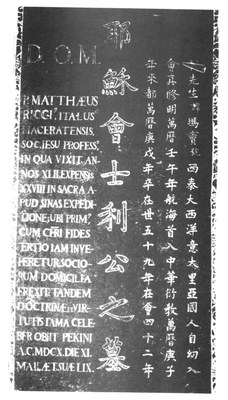 D.O.M.
P. MATTHÆUS
RICCI, ITALUS
MACERATENSIS,
SOC. IESU PROFESS',
IN QUA VIXIT AN-
NOS XLII. EXPENSIS
XXVIII IN SACRA A-
PUD SINAS EXPEDI-
TIONE; UBI PRIM',
CUM CHRI FIDES
TERTIO IAM INVE-
HERETUR, SOCIO-
RUM DOMICILIA
EREXIT. TANDEM
DOCTRINÆ, VIR-
TUTIS FAMA CELE-
BER OBIIT PEKINI
A.C. MDCX. DIE XI.
MAII. ÆT. SUÆ LIX.
耶穌會士利公之墓
先生諱瑪竇號西泰大西洋意大里亞國人自幼入
會真修明萬曆壬午年航海首入中華衍教萬曆庚子
年來都萬曆庚戌年卒在世五十九年在會四十二年